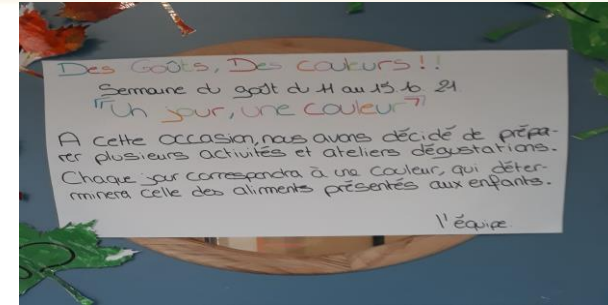 Des Goûts, Des couleurs !!
Semaine du goût du 11 au 15.10.21
"Un jour, une couleur"
A cette occasion, nous avons décidé de prépa-
rer plusieurs activités et ateliers dégustations.
Chaque jour correspondra à une couleur, qui déter-
minera celle des aliments présentés aux enfants.
l'équipe